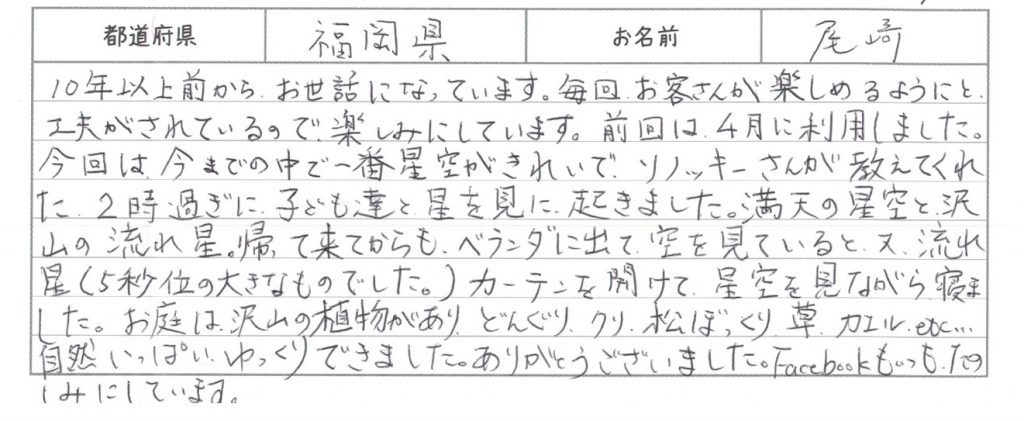 都道府県 福岡県 お名前 尾崎
10年以上前から、お世話になっています。毎回、お客さんが楽しめるようにと、
工夫がされているので、楽しみにしています。前回は、4月に利用しました。
今回は、今までの中で一番星空がきれいで、ソノッキーさんが教えてくれ
た、2時過ぎに、子ども達と、星を見に、起きました。満天の星空と、沢
山の流れ星。帰って来てからも、ベランダに出て、空を見ていると、又、流れ
星(5秒位の大きなものでした。)カーテンを開けて、星空を見ながら、寝ま
した。お庭は、沢山の植物があり、どんぐり、クリ、松ぼっくり、草、カエル、etc…
自然いっぱい、ゆっくりできました。ありがとうございました。Facebookもいつも、たの
しみにしています。